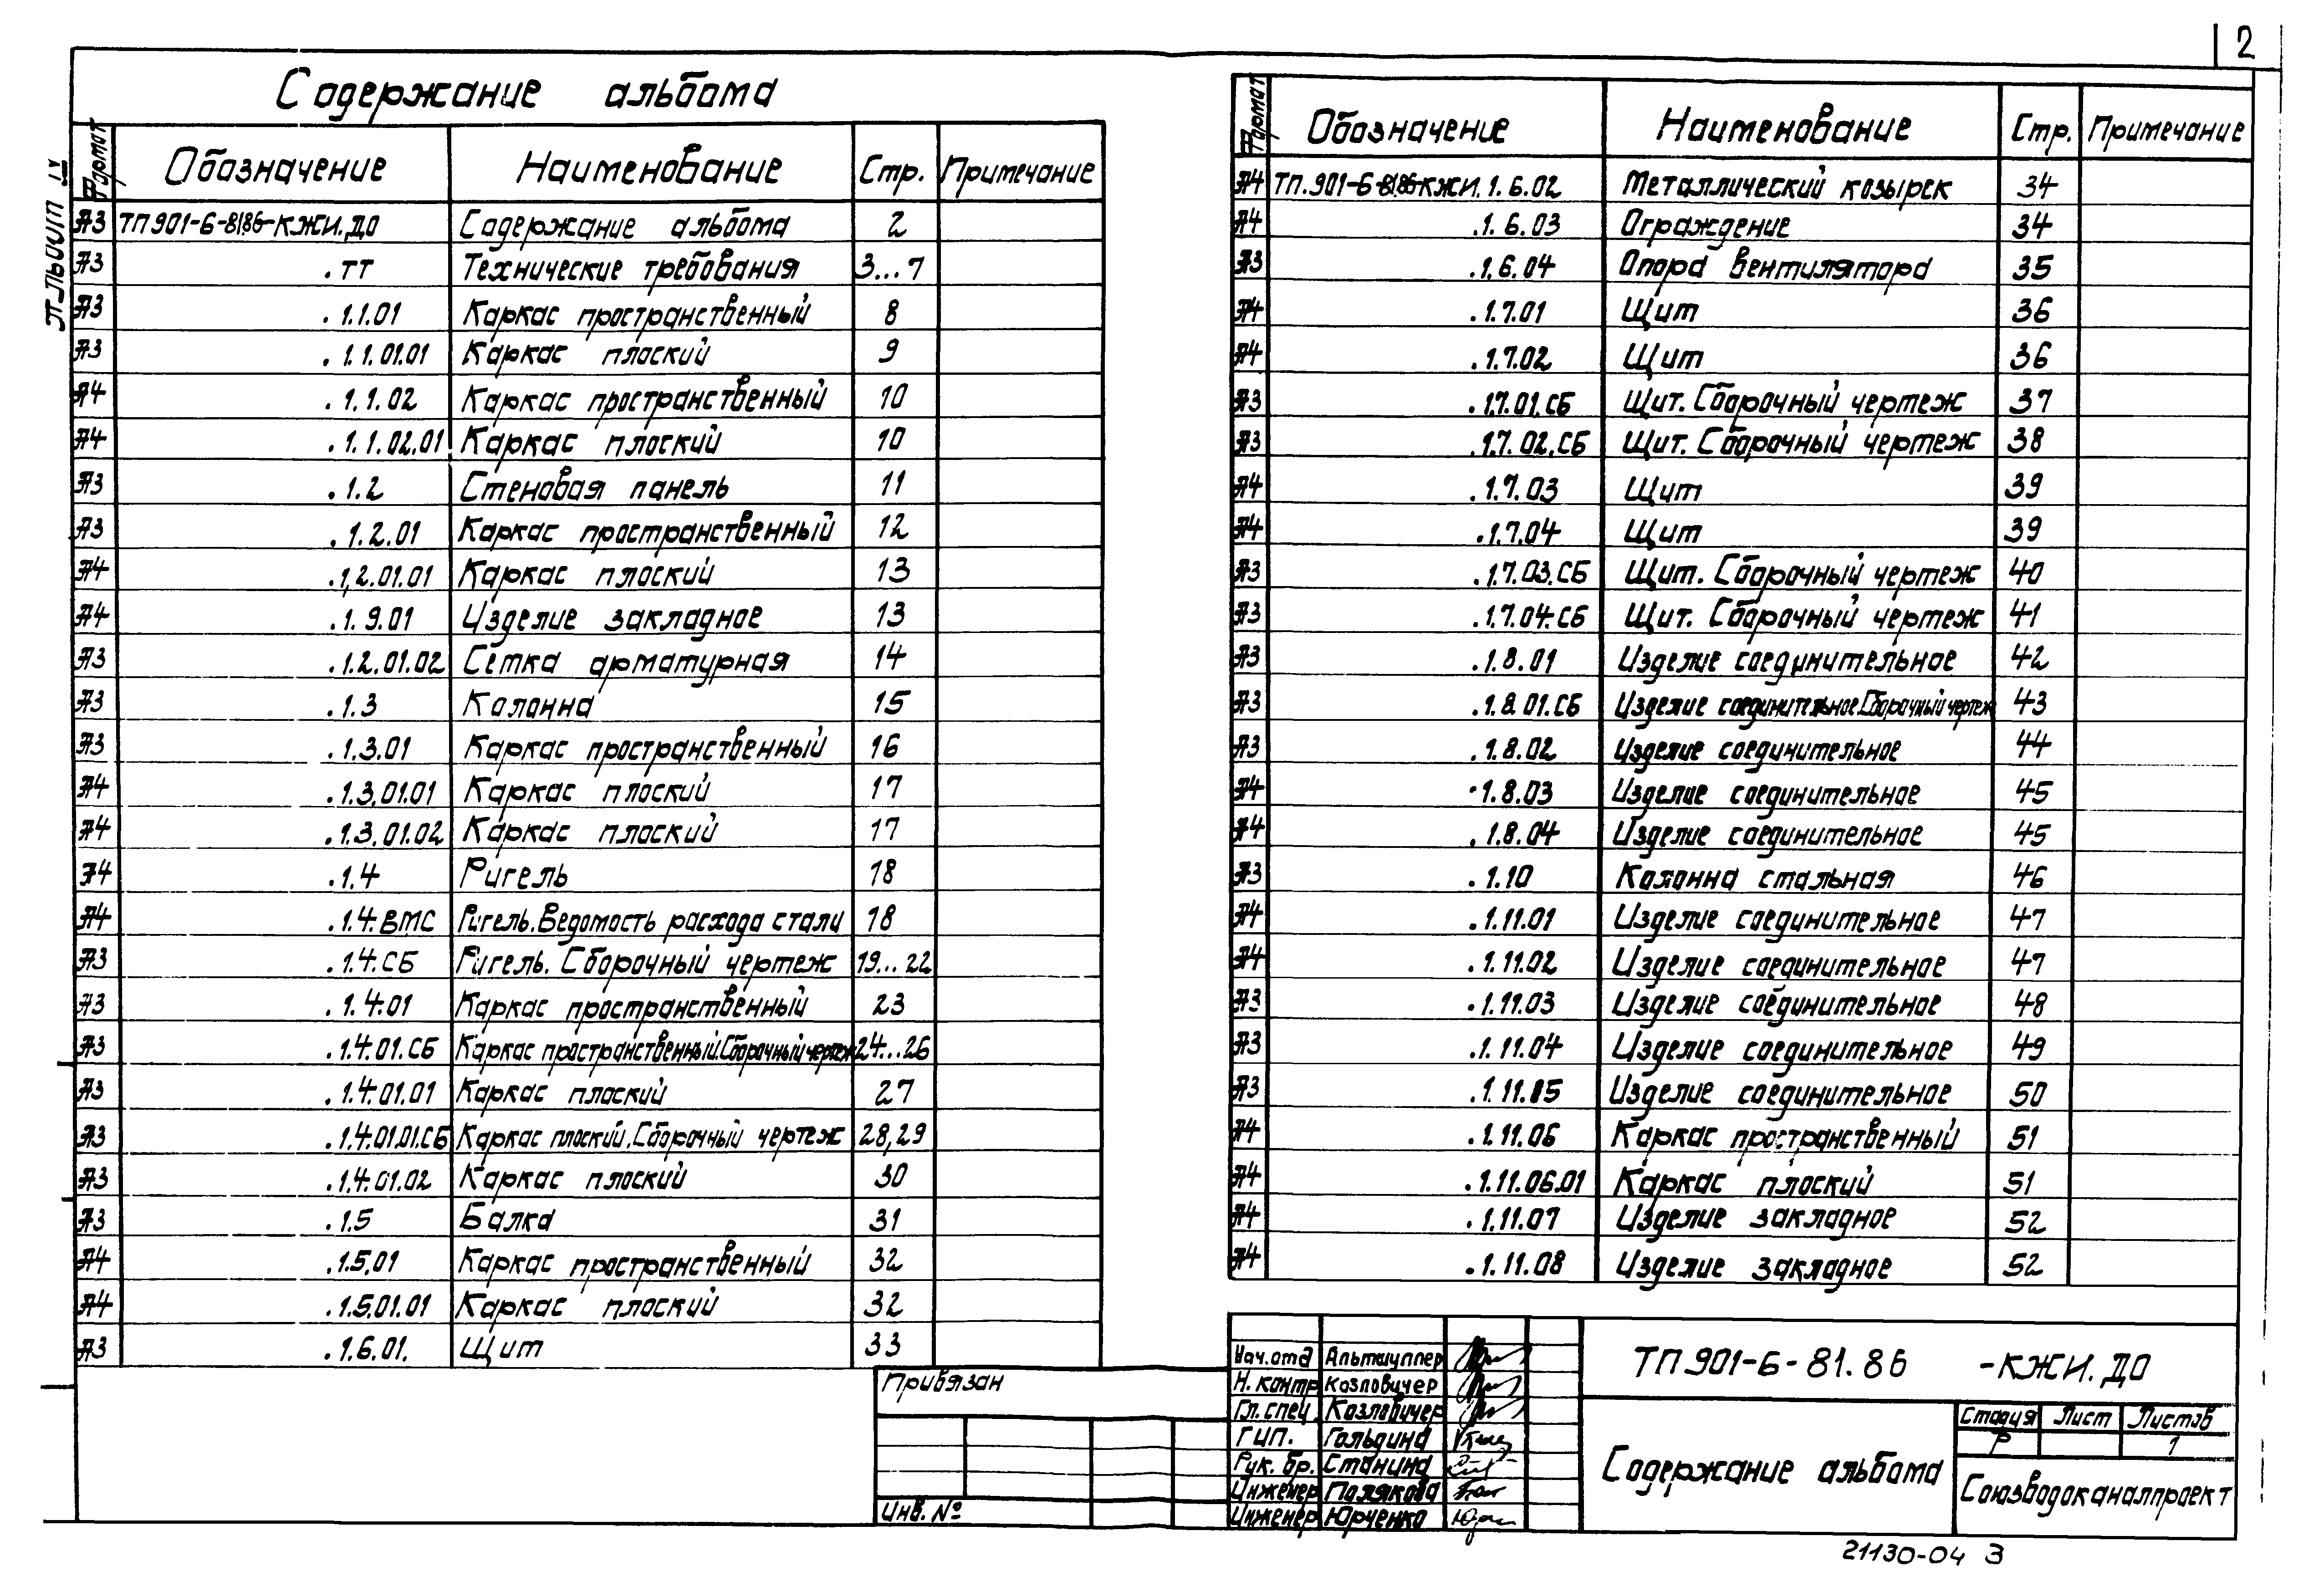 2
Альбом IV
Содержание альбома
Формат Обозначение Наименование Стр. Примечание
А3 ТП901-6-81.86-КЖИ.ДО Содержание альбома 2
А3 .ТТ Технические требования 3...7
А3 .1.1.01 Каркас пространственный 8
А3 .1.1.01.01 Каркас плоский 9
А4 .1.1.02 Каркас пространственный 10
А4 .1.1.02.01 Каркас плоский 10
А3 .1.2 Стеновая панель 11
А3 .1.2.01 Каркас пространственный 12
А4 .1.2.01.01 Каркас плоский 13
А4 .1.9.01 Изделие закладное 13
А3 .1.2.01.02 Сетка арматурная 14
А3 .1.3 Колонна 15
А3 .1.3.01 Каркас пространственный 16
А4 .1.3.01.01 Каркас плоский 17
А4 .1.3.01.02 Каркас плоский 17
А4 .1.4 Ригель 18
А4 .1.4.ВМС Ригель.Ведомость расхода стали 18
А3 .1.4.СБ Ригель. Сборочный чертеж 19...22
А3 .1.4.01 Каркас пространственный 23
А3 .1.4.01.СБ Каркас пространственный.Сборочный чертеж 24...26
А3 .1.4.01.01 Каркас плоский 27
А3 .1.4.01.01.СБ Каркас плоский.Сборочный чертеж 28,29
А3 .1.4.01.02 Каркас плоский 30
А3 .1.5 Балка 31
А4 .1.5.01 Каркас пространственный 32
А4 .1.5.01.01 Каркас плоский 32
А3 .1.6.01. Щит 33
Формат Обозначение Наименование Стр. Примечание
А4 ТП.901-6-81.86-КЖИ.1.6.02 Металлический козырек 34
А4 .1.6.03 Ограждение 34
А3 .1.6.04 Опора вентилятора 35
А4 .1.7.01 Щит 36
А4 .1.7.02 Щит 36
А3 .1.7.01.СБ Щит. Сборочный чертеж 37
А3 .1.7.02.СБ Щит. Сборочный чертеж 38
А4 .1.7.03 Щит 39
А4 .1.7.04 Щит 39
А3 .1.7.03.СБ Щит. Сборочный чертеж 40
А3 .1.7.04.СБ Щит. Сборочный чертеж 41
А3 .1.8.01 Изделие соединительное 42
А3 .1.8.01.СБ Изделие соединительное.Сборочный чертеж 43
А3 .1.8.02 Изделие соединительное 44
А4 .1.8.03 Изделие соединительное 45
А4 .1.8.04 Изделие соединительное 45
А3 .1.10 Колонна стальная 46
А4 .1.11.01 Изделие соединительное 47
А4 .1.11.02 Изделие соединительное 47
А3 .1.11.03 Изделие соединительное 48
А3 .1.11.04 Изделие соединительное 49
А3 .1.11.05 Изделие соединительное 50
А4 .1.11.06 Каркас пространственный 51
А4 .1.11.06.01 Каркас плоский 51
А4 .1.11.07 Изделие закладное 52
А4 .1.11.08 Изделие закладное 52
Привязан
Инв. №
Нач.отд Альтшуллер
Н. контр Козловичер
Гл. спец. Козловичер
ГИП. Гольдина
Рук. бр. Станина
Инженер Полякова
Инженер Юрченко
ТП901-6-81.86 -КЖИ.ДО
Содержание альбома
Стадия Лист Листов
Р 1
Союзводоканалпроект
21130-04 3